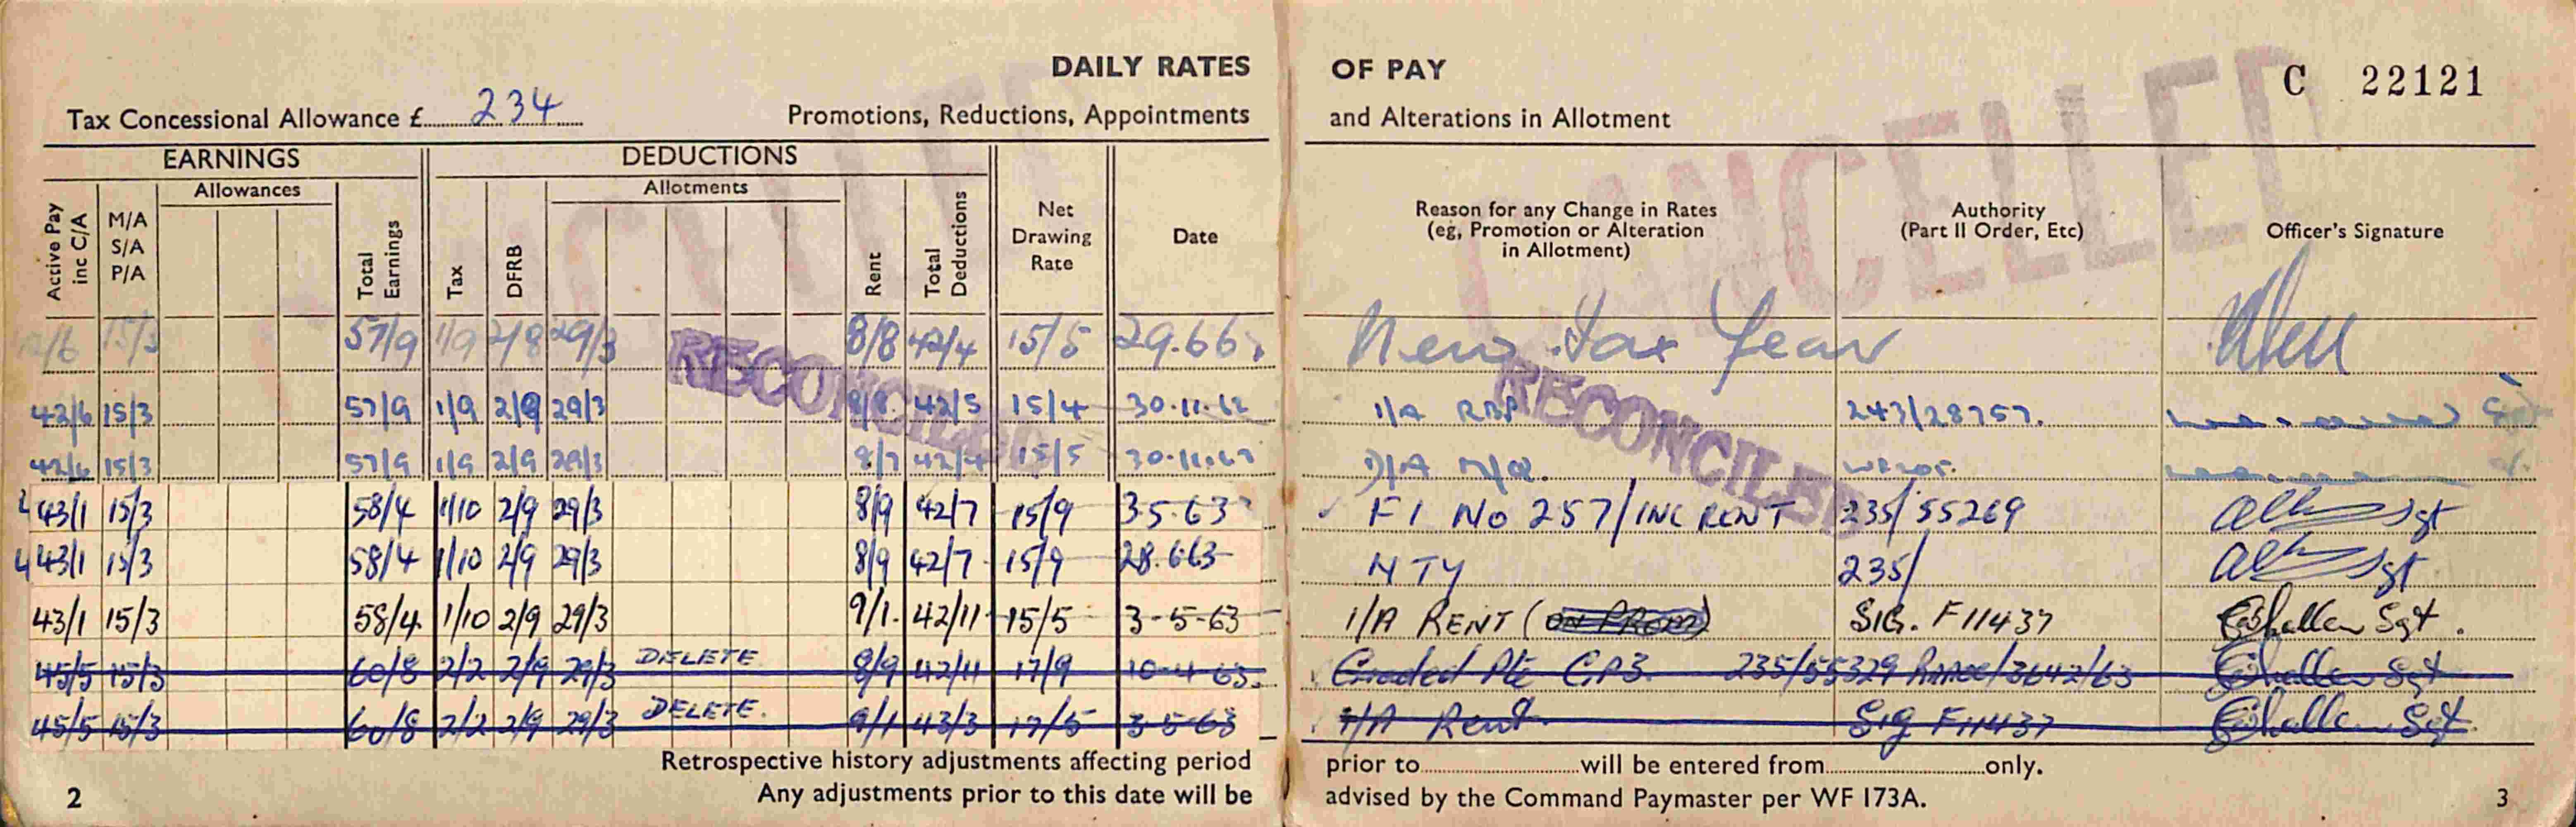 DAILY RATES OF PAY C 22121
Tax Concessional Allowance £ 234 Promotions, Reductions, Appointments and Alterations in Allotment
EARNINGS DEDUCTIONS
Allowances Allotments
Active Pay inc C/A M/A S/A P/A Total Earnings Tax DFRB Rent Total Deductions Net Drawing Rate Date Reason for any Change in Rates (eg, Promotion or Alteration in Allotment) Authority (Part II Order, Etc) Officer's Signature
CANCELLED
CANCELLED
15/3 57/9 1/9 2/8 29/3 8/8 42/4 15/5 29.66. New Tax Year
RECONCILED RECONCILED
42/6 15/3 57/9 1/9 2/9 29/3 8/8 42/5 15/4 30.11.62 I/A 243/28757.
42/6 15/3 57/9 1/9 2/9 29/3 8/7 42/4 15/5
43/1 15/3 58/4 1/10 2/9 29/3 8/9 42/7 15/9 3.5.63 F1 No 257/INC RENT 235/55269 Sgt
43/1 15/3 58/4 1/10 2/9 29/3 8/9 42/7 15/9 28.6.63 NTY 235/ Sgt
43/1 15/3 58/4 1/10 2/9 29/3 9/1 42/11 15/5 3-5-63 I/A RENT (ON PROM) SIG. F11437 Sgt.
45/5 15/3 60/8 2/2 2/9 29/3 DELETE 8/9 42/11 17/9 10-4-63. Graded Pte 235/55329 /3642/63 Sgt
45/5 15/3 60/8 2/2 2/9 29/3 DELETE. 9/1 43/3 17/5 3-5-63 I/A Rent. Sig F11437 Sgt.
Retrospective history adjustments affecting period prior to will be entered from only.
2 Any adjustments prior to this date will be advised by the Command Paymaster per WF 173A. 3